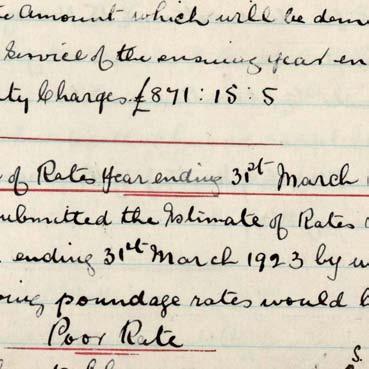 Amount which will be
Service of the ensuing year
Charges £871:15:5
of Rates Year ending 31st March
submitted the Estimate of Rates
ending 31st March 1923 by
poundage rates would
Poor Rate
s.